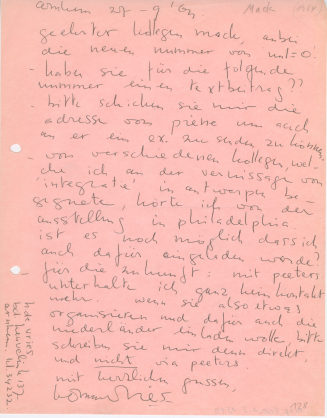 arnhem 27-9'64 Mack (1964)
geehrter kollegen mack, anbei
die neuen nummer von nul=0.
- haben sie für die folgende
nummer einen textbeitrag??
- bitte schicken sie mir die
adresse von piene um auch
an er ein ex. zu senden zu können.
- von verschiedenen kollegen, wel-
che ich an der vernissage von
'integratie' in antwerpen be-
gegnete, hörte ich von der
ausstelling in philadelphia
ist es noch möglich dass ich
auch dafür eingeladen werde?
für die zukunft: mit peeters
unterhalte ich ganz kein kontakt
mehr. wenn sie also etwas
organisieren und dafür auch die
niederländer einladen wolle, bitte
schreiben sie mir denn direkt,
und nicht via peeters.
mit herzlichen grussen,
herman de vries
h. de vries
arnhem
128